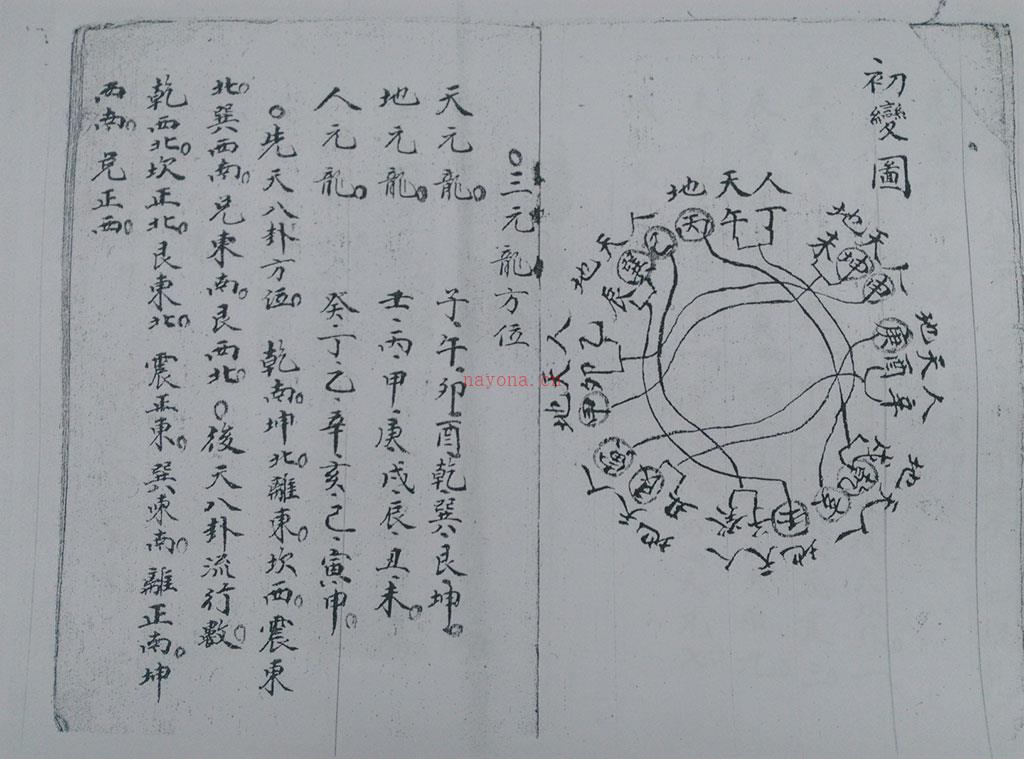 初變圖
地天人
丙午丁
地天人
未坤申
地天人
庚酉辛
地天人
戌乾亥
地天人
壬子癸
地天人
丑艮寅
地天人
甲卯乙
地天人
辰巽巳
〇三元龍方位
天元龍。 子、午、卯、酉、乾、巽、艮、坤。
地元龍。 壬、丙、甲、庚、戌、辰、丑、未。
人元龍。 癸、丁、乙、辛、亥、巳、寅、申。
〇先天八卦方位。 乾南。坤北。離東。坎西。震東
北。巽西南。兌東南。艮西北。〇後天八卦流行數。
乾西北。坎正北。艮東北。震正東。巽東南。離正南。坤
西南。兌正西。
nayona.cn